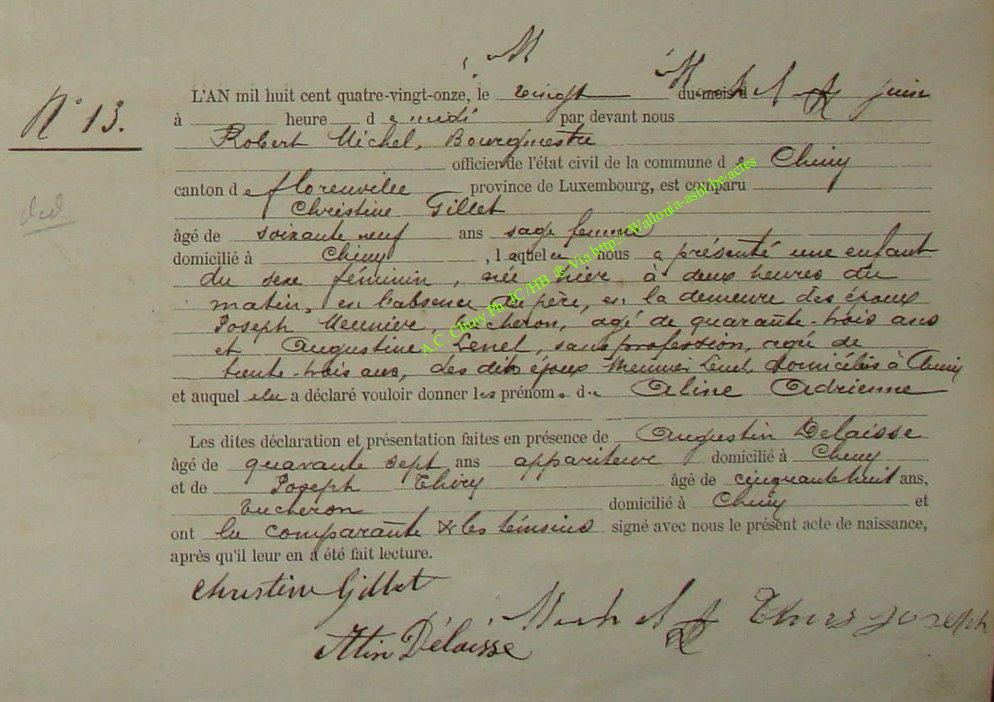 N° 13.
L'AN mil huit cent quatre-vingt-onze, le vingt du mois d juin
à heure d e midi par devant nous
Robert Michel, Bourgmestre
officier de l'état civil de la commune d e Chiny
canton d e Florenville province de Luxembourg, est comparu
Christine Gillet
âgé de soixante neuf ans sage femme
domicilié à Chiny, laquelle nous a présenté une enfant
du sexe féminin, née hière à deux heures du
matin, en l'absence du père, en la demeure des époux
Joseph Meunier, bucheron, agé de quarante-trois ans
et Augustine Lenel, sans profession, agée de
trente-trois ans, des dits époux Meunier Lenel, domiciliés à Chiny
et auquel elle a déclaré vouloir donner les prénoms de Aline Adrienne
Les dites déclaration et présentation faites en présence de Augustin Delaisse
âgé de quarante sept ans appariteur domicilié à Chiny
et de Joseph Thiry âgé de cinquante huit ans,
bucheron domicilié à Chiny et
ont la comparante & les témoins signé avec nous le présent acte de naissance,
après qu'il leur en a été fait lecture.
Christine Gillet
Thirs Joseph
Atin Délaisse
A.C. Chiny Ph JC /HB @ Via http://Wallonia-asbl.be/actes